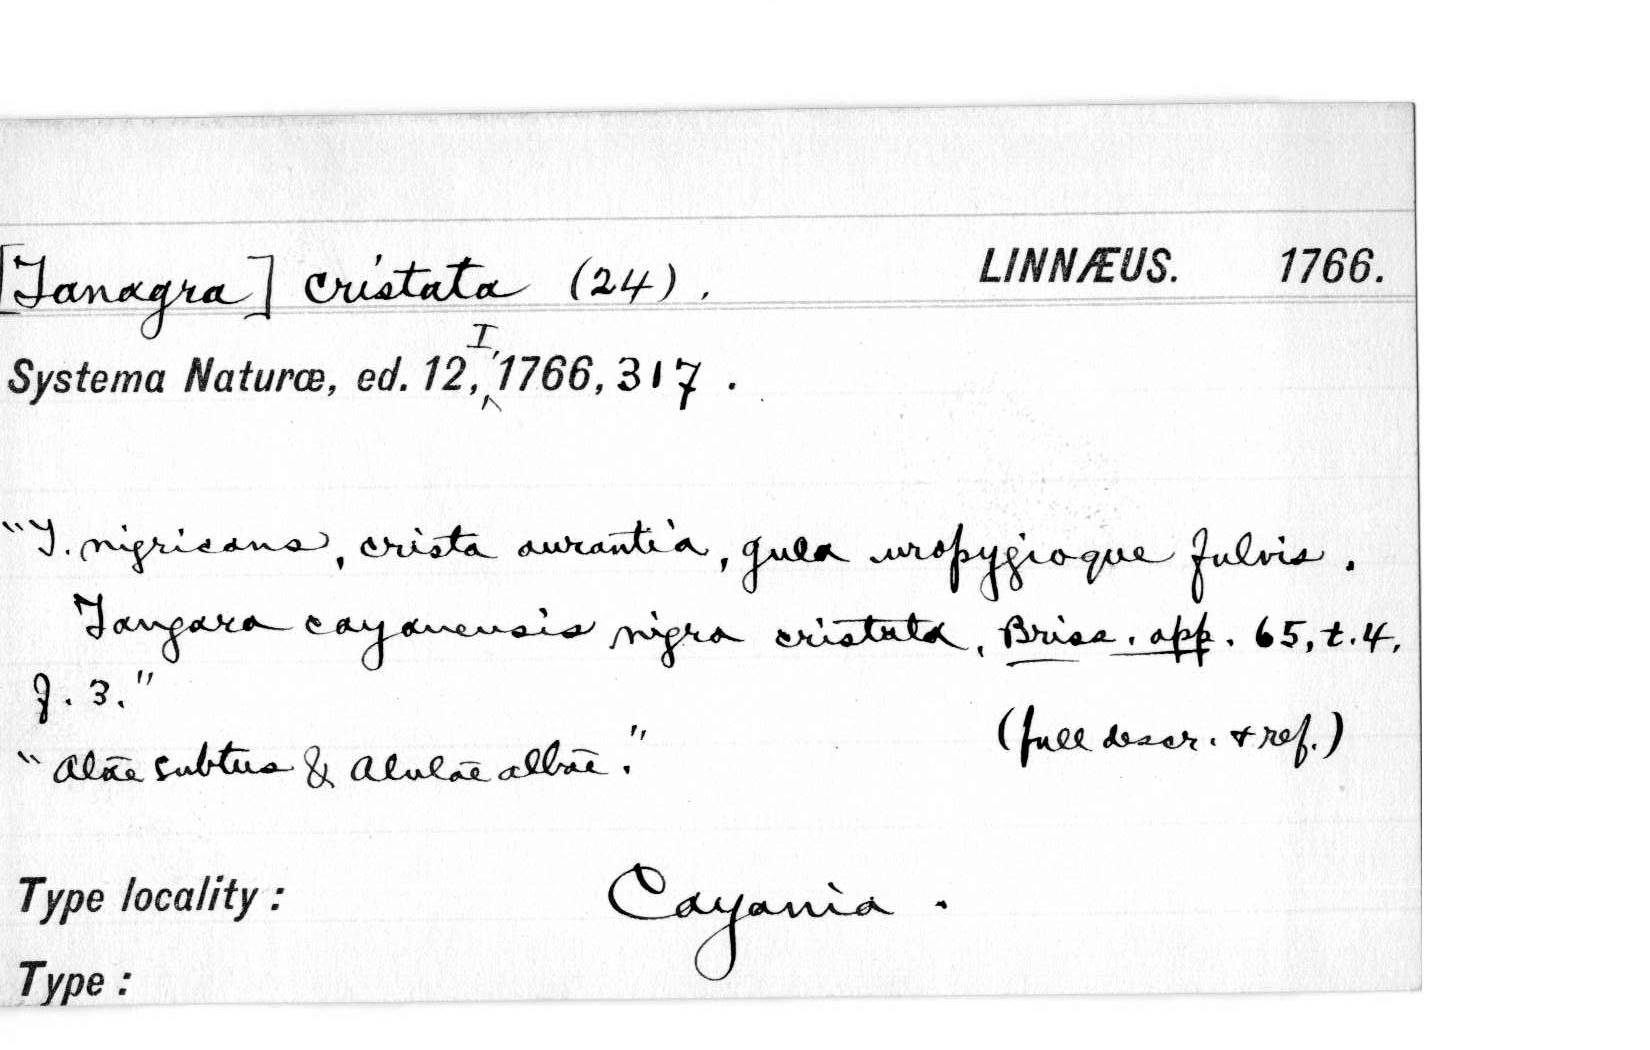 [Tanagra] cristata (24). LINNÆUS. 1766.
Systema Naturæ, ed. 12, I, 1766, 317.
"T. nigricans, crista aurantia, gula uropygioque fulvis.
Tangara cayanensis nigra cristata, Briss. app. 65, t. 4,
f. 3."
(full descr. & ref.)
"Alae subtus & Alulae albae."
Type locality: Cayania.
Type: